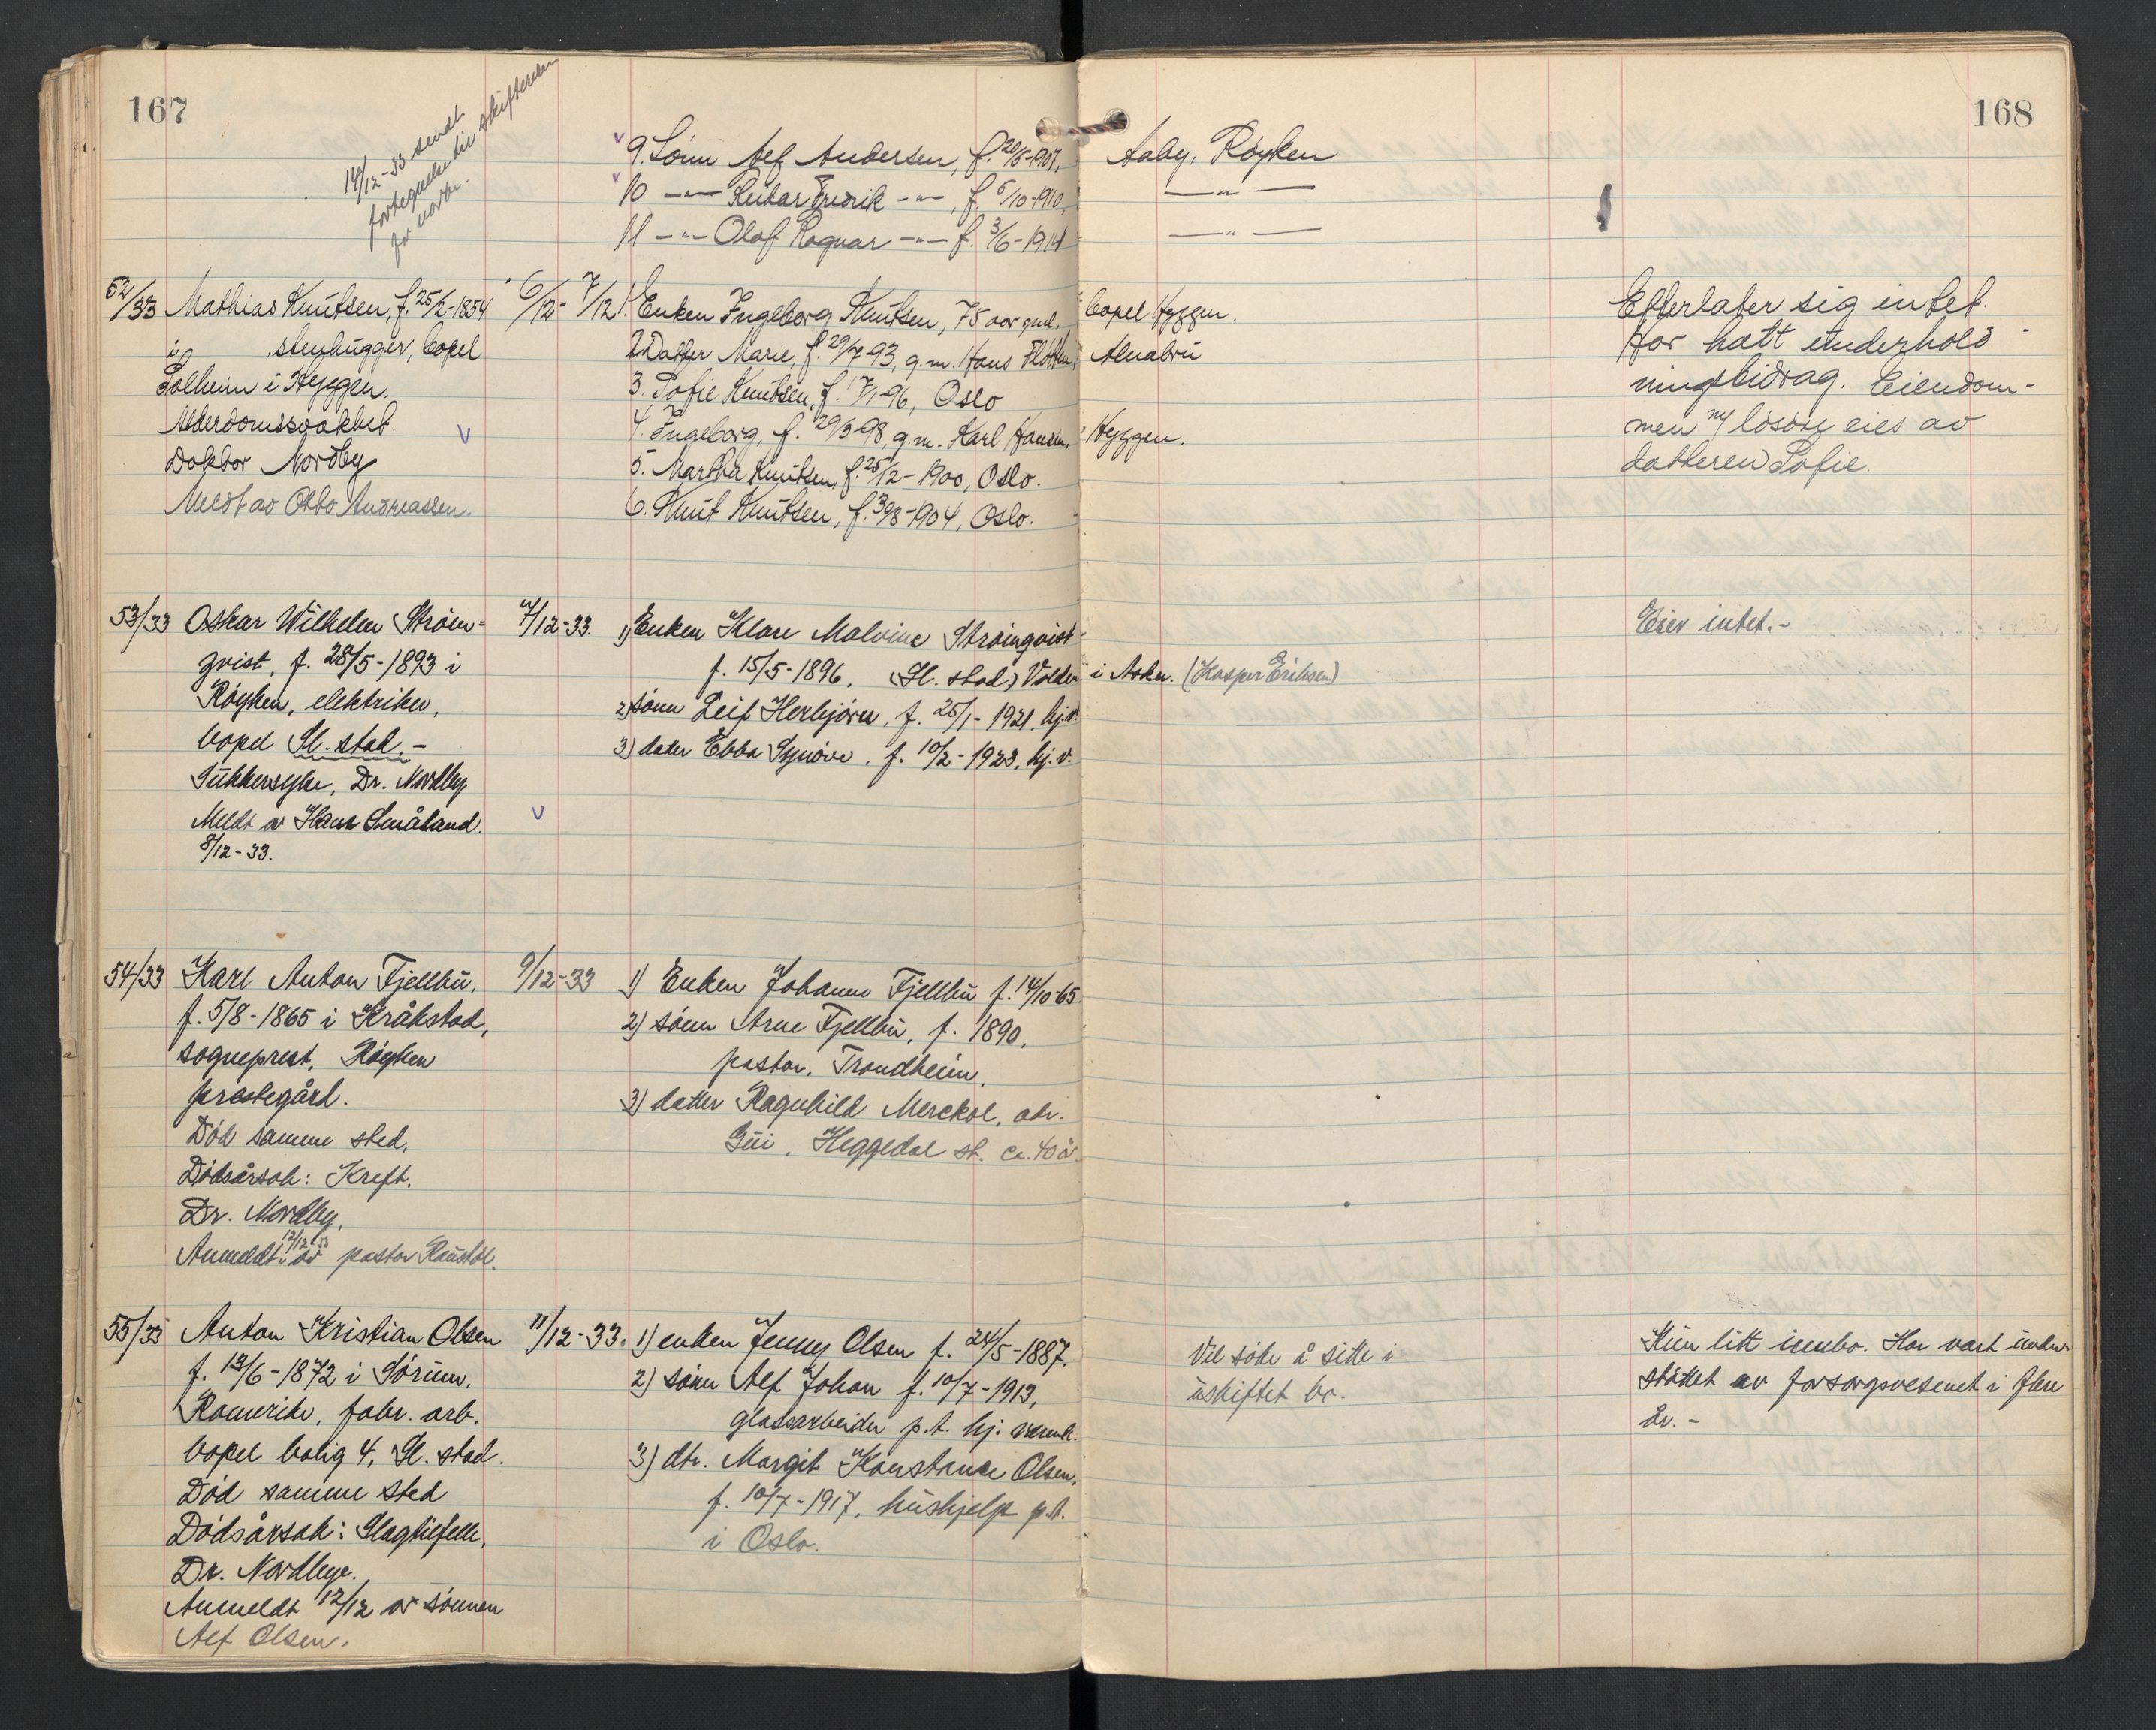 167
168
14/12-33 sendt
fortegnelse til skifteretten
9. Sønn Alf Andersen, f. 20/5-1907, Aaby, Røyken
10 —"— Reidar Fredrik —"—, f. 5/10-1910, —"—
11 —"— Olaf Ragnar —"— f. 3/6-1914 —"—
52/33 Mathias Knutsen, f. 25/2-1854 6/12- 7/12 1. Enken Ingeborg Knutsen, 75 aar gml. bopel Hyggen. Efterlater sig intet.
i , stenhugger, bopel 2 Datter Marie, f. 29/7-93, g.m. Hans Alnabru Har hatt underhold-
Solheim i Hyggen. 3. Sofie Knutsen, f. 17/1-96, Oslo ningsbidrag. Eiendom-
Alderdomssvakhet. v 4. Ingeborg, f. 29/3-98, g.m. Karl Hansen, Hyggen. men m/ løsøre eies av
Doktor Nordby 5. Martha Knutsen, f. 25/12-1900, Oslo. datteren Sofie.
Meldt av Otto Andreassen. 6. Knut Knutsen, f. 30/8-1904, Oslo.
53/33 Oskar Wilhelm Strøm- 7/12-33. 1) Enken Klara Malvine Strømqvist Eier intet.-
qvist, f. 28/5-1893 i f. 15/5-1896, (Sl. stad) Volden i Asker. (Kasper Eriksen)
Røyken, elektriker, 2) sønn Leif Herbjørn, f. 25/1-1921. hj.v.
bopel Sl. stad.- 3) dater Ebba Synøve, f. 10/2-1923, hj. v.
Sukkersyke, Dr. Nordby
Meldt av Hans Småland. v
8/12-33.
54/33 Karl Anton Fjellbu, 9/12-33 1) Enken Johanne Fjellbu f. 14/10-65
f. 5/8-1865 i Kråkstad, 2) sønn Arne Fjellbu, f. 1890,
sogneprest, Røyken pastor, Trondheim.
prestegård. 3) datter Ragnhild Merckol, adr.
Død samme sted, Gui, Heggedal st. ca. 40 år
Dødsårsak: Kreft.
Dr. Nordby.
Anmeldt 12/12 33 av pastor Raustøl.
55/33 Anton Kristian Olsen 11/12-33. 1) enken Jenny Olsen f. 24/5-1887. Vil søke å sitte i Kun litt innbo. Har vært under-
f. 13/6-1872 i Sørum, 2) sønn Alf Johan f. 10/7-1913, uskiftet bo. støttet av forsorgsvesenet i flere
Romerike, fabr. arb. glassarbeider p.t. hj. værende. år.-
bopel bolig 4, Sl. stad. 3) dtr. Margit Konstance Olsen,
Død samme sted f. 10/7-1917, hushjelp p.t.
Dødsårsak: Slagtilfelle, i Oslo.
Dr. Nordbye.
Anmeldt 12/12 av sønnen
Alf Olsen.